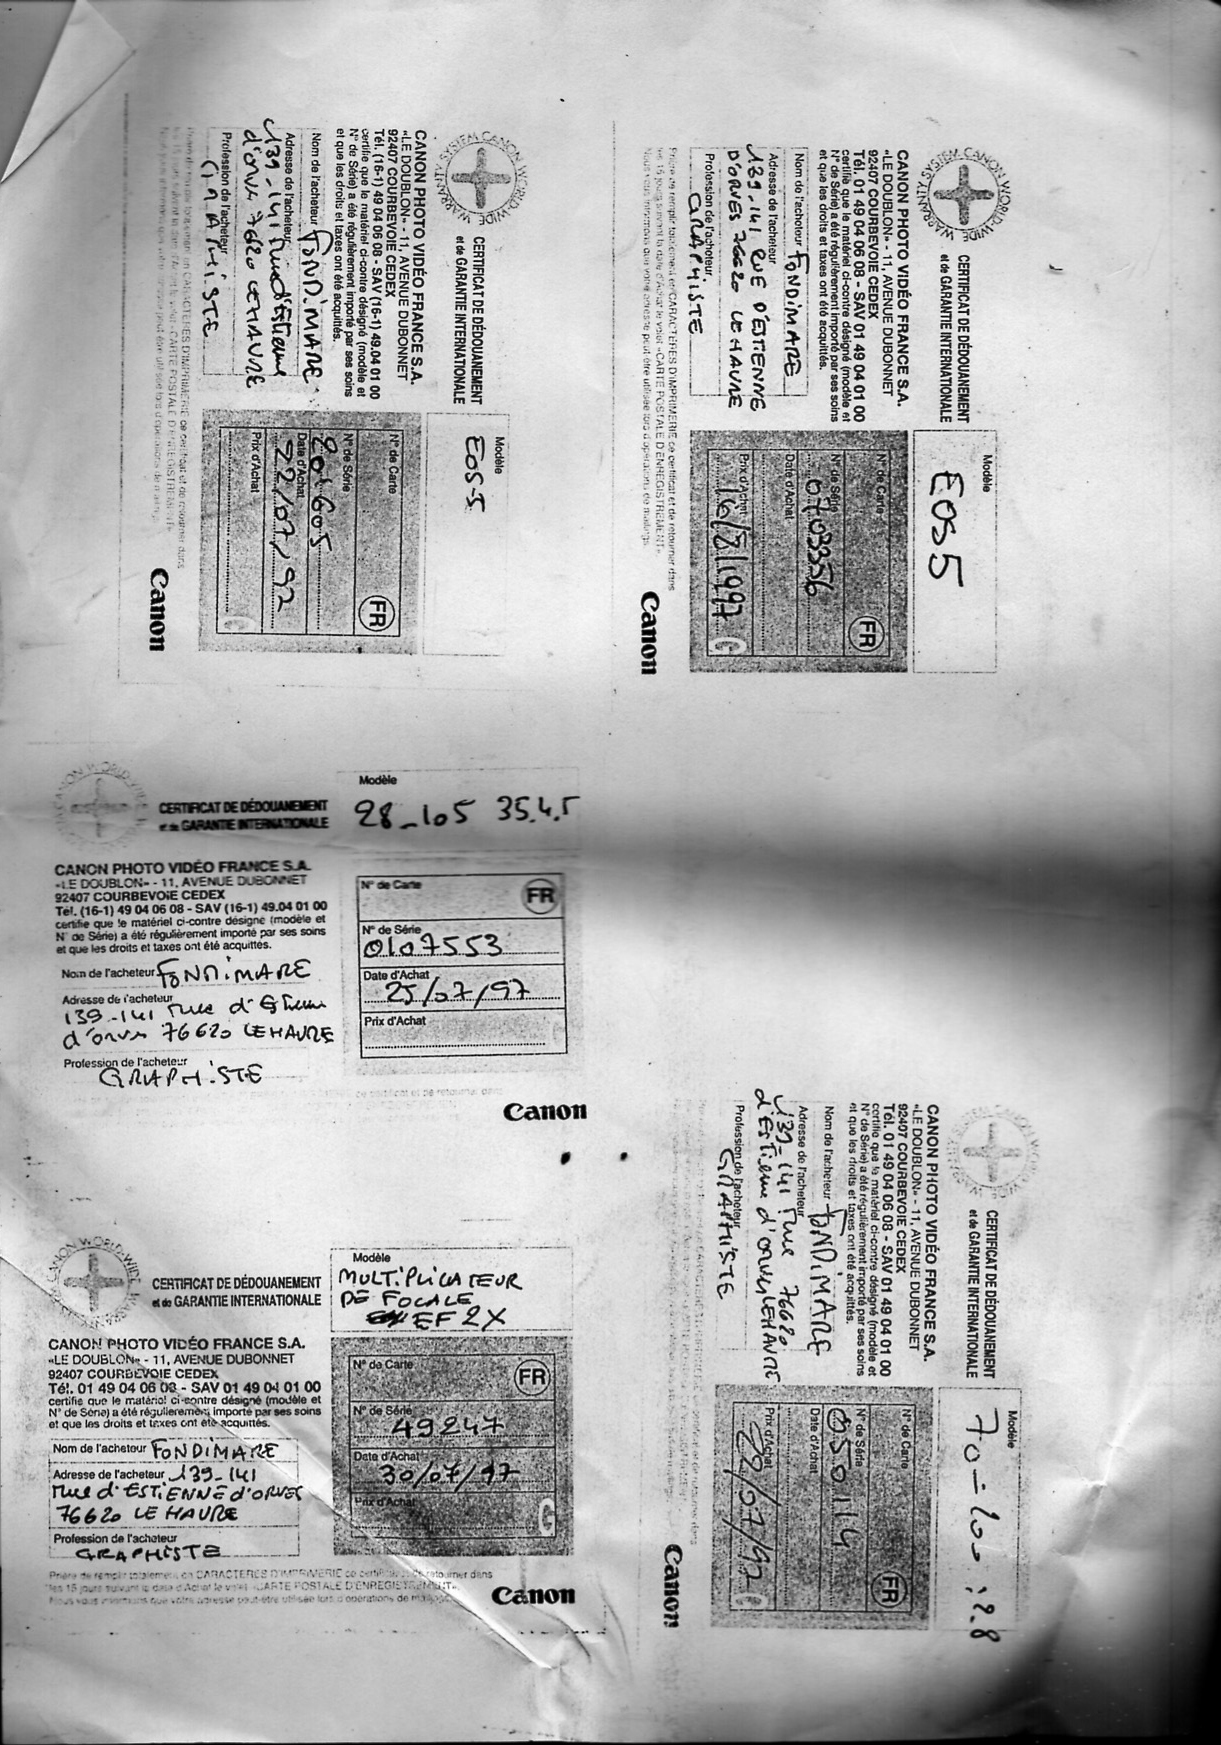 CANON WORLD-WIDE WARRANTY SYSTEM
CERTIFICAT DE DÉDOUANEMENT
et de GARANTIE INTERNATIONALE
Modèle
EOS-5
CANON PHOTO VIDÉO FRANCE S.A.
«LE DOUBLON» - 11, AVENUE DUBONNET
92407 COURBEVOIE CEDEX
Tél. (16-1) 49 04 06 08 - SAV (16-1) 49.04 01 00
certifie que le matériel ci-contre désigné (modèle et
N° de Série) a été régulièrement importé par ses soins
et que les droits et taxes ont été acquittés.
Nom de l'acheteur FONDIMARE
Adresse de l'acheteur
139-141 rue d'Estienne
d'orves 76620 LE HAVRE
Profession de l'acheteur
GRAPHISTE
N° de Carte
FR
N° de Série
Date d'Achat
22/07/92
Prix d'Achat
G
Canon
CANON WORLD-WIDE WARRANTY SYSTEM
CERTIFICAT DE DÉDOUANEMENT
et de GARANTIE INTERNATIONALE
Modèle
EOS 5
CANON PHOTO VIDÉO FRANCE S.A.
«LE DOUBLON» - 11, AVENUE DUBONNET
92407 COURBEVOIE CEDEX
Tél. 01 49 04 06 08 - SAV 01 49 04 01 00
certifie que le matériel ci-contre désigné (modèle et
N° de Série) a été régulièrement importé par ses soins
et que les droits et taxes ont été acquittés.
Nom de l'acheteur FONDIMARE
Adresse de l'acheteur
139-141 RUE D'ESTIENNE
D'ORVES 76620 LE HAVRE
Profession de l'acheteur
GRAPHISTE
N° de Carte
FR
N° de Série
0703356
Date d'Achat
Prix d'Achat
G
Prière de remplir totalement en CARACTERES D'IMPRIMERIE ce certificat et de retourner dans
les 15 jours suivant la date d'Achat le volet «CARTE POSTALE D'ENREGISTREMENT».
Nous vous informons que votre adresse peut-être utilisée lors d'opérations de mailings
Canon
CERTIFICAT DE DÉDOUANEMENT
et de GARANTIE INTERNATIONALE
Modèle
28-105 35.4.5
CANON PHOTO VIDÉO FRANCE S.A.
«LE DOUBLON» - 11, AVENUE DUBONNET
92407 COURBEVOIE CEDEX
Tél. (16-1) 49 04 06 08 - SAV (16-1) 49.04 01 00
certifie que le matériel ci-contre désigné (modèle et
N° de Série) a été régulièrement importé par ses soins
et que les droits et taxes ont été acquittés.
Nom de l'acheteur FONDIMARE
Adresse de l'acheteur
139-141 rue d'Estienne
d'orves 76620 LE HAVRE
Profession de l'acheteur
GRAPHISTE
N° de Carte
FR
N° de Série
0107553
Date d'Achat
25/07/97
Prix d'Achat
Canon
CERTIFICAT DE DÉDOUANEMENT
et de GARANTIE INTERNATIONALE
Modèle
70-200 :2.8
CANON PHOTO VIDÉO FRANCE S.A.
«LE DOUBLON» - 11, AVENUE DUBONNET
92407 COURBEVOIE CEDEX
Tél. 01 49 04 06 08 - SAV 01 49 04 01 00
certifie que le matériel ci-contre désigné (modèle et
N° de Série) a été régulièrement importé par ses soins
et que les droits et taxes ont été acquittés.
Nom de l'acheteur FONDIMARE
Adresse de l'acheteur
139-141 rue 76620
d'Estienne d'orves LE HAVRE
Profession de l'acheteur
GRAPHISTE
N° de Carte
FR
N° de Série
Date d'Achat
Prix d'Achat
G
Canon
CANON WORLD-WIDE
CERTIFICAT DE DÉDOUANEMENT
et de GARANTIE INTERNATIONALE
Modèle
MULTIPLICATEUR
DE FOCALE
EF 2X
CANON PHOTO VIDÉO FRANCE S.A.
«LE DOUBLON» - 11, AVENUE DUBONNET
92407 COURBEVOIE CEDEX
Tél. 01 49 04 06 08 - SAV 01 49 04 01 00
certifie que le matériel ci-contre désigné (modèle et
N° de Série) a été régulièrement importé par ses soins
et que les droits et taxes ont été acquittés.
Nom de l'acheteur FONDIMARE
Adresse de l'acheteur 139-141
rue d'ESTIENNE d'ORVES
76620 LE HAVRE
Profession de l'acheteur
GRAPHISTE
N° de Carte
FR
N° de Série
49247
Date d'Achat
30/07/97
Prix d'Achat
G
Prière de remplir totalement en CARACTERES D'IMPRIMERIE ce certificat et de retourner dans
les 15 jours suivant la date d'Achat le volet «CARTE POSTALE D'ENREGISTREMENT».
Nous vous informons que votre adresse peut-être utilisée lors d'opérations de mailings
Canon